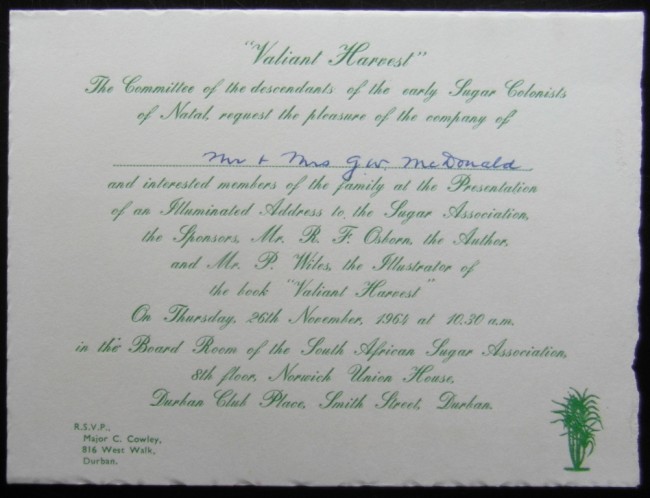 "Valiant Harvest"
The Committee of the descendants of the early Sugar Colonists
of Natal, request the pleasure of the company of
Mr + Mrs G.W. McDonald
and interested members of the family at the Presentation
of an Illuminated Address to, the Sugar Association,
the Sponsors, Mr. R. F. Osborn, the Author,
and Mr. P. Wiles, the Illustrator of
the book "Valiant Harvest"
On Thursday, 26th November, 1964 at 10.30 a.m.
in the Board Room of the South African Sugar Association,
8th floor, Norwich Union House,
Durban Club Place, Smith Street, Durban.
R.S.V.P.,
Major C. Cowley,
816 West Walk,
Durban.